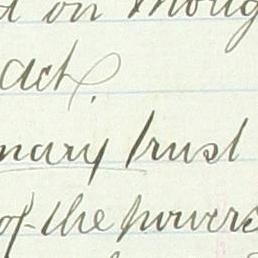 on
act
nary trust
of the powers